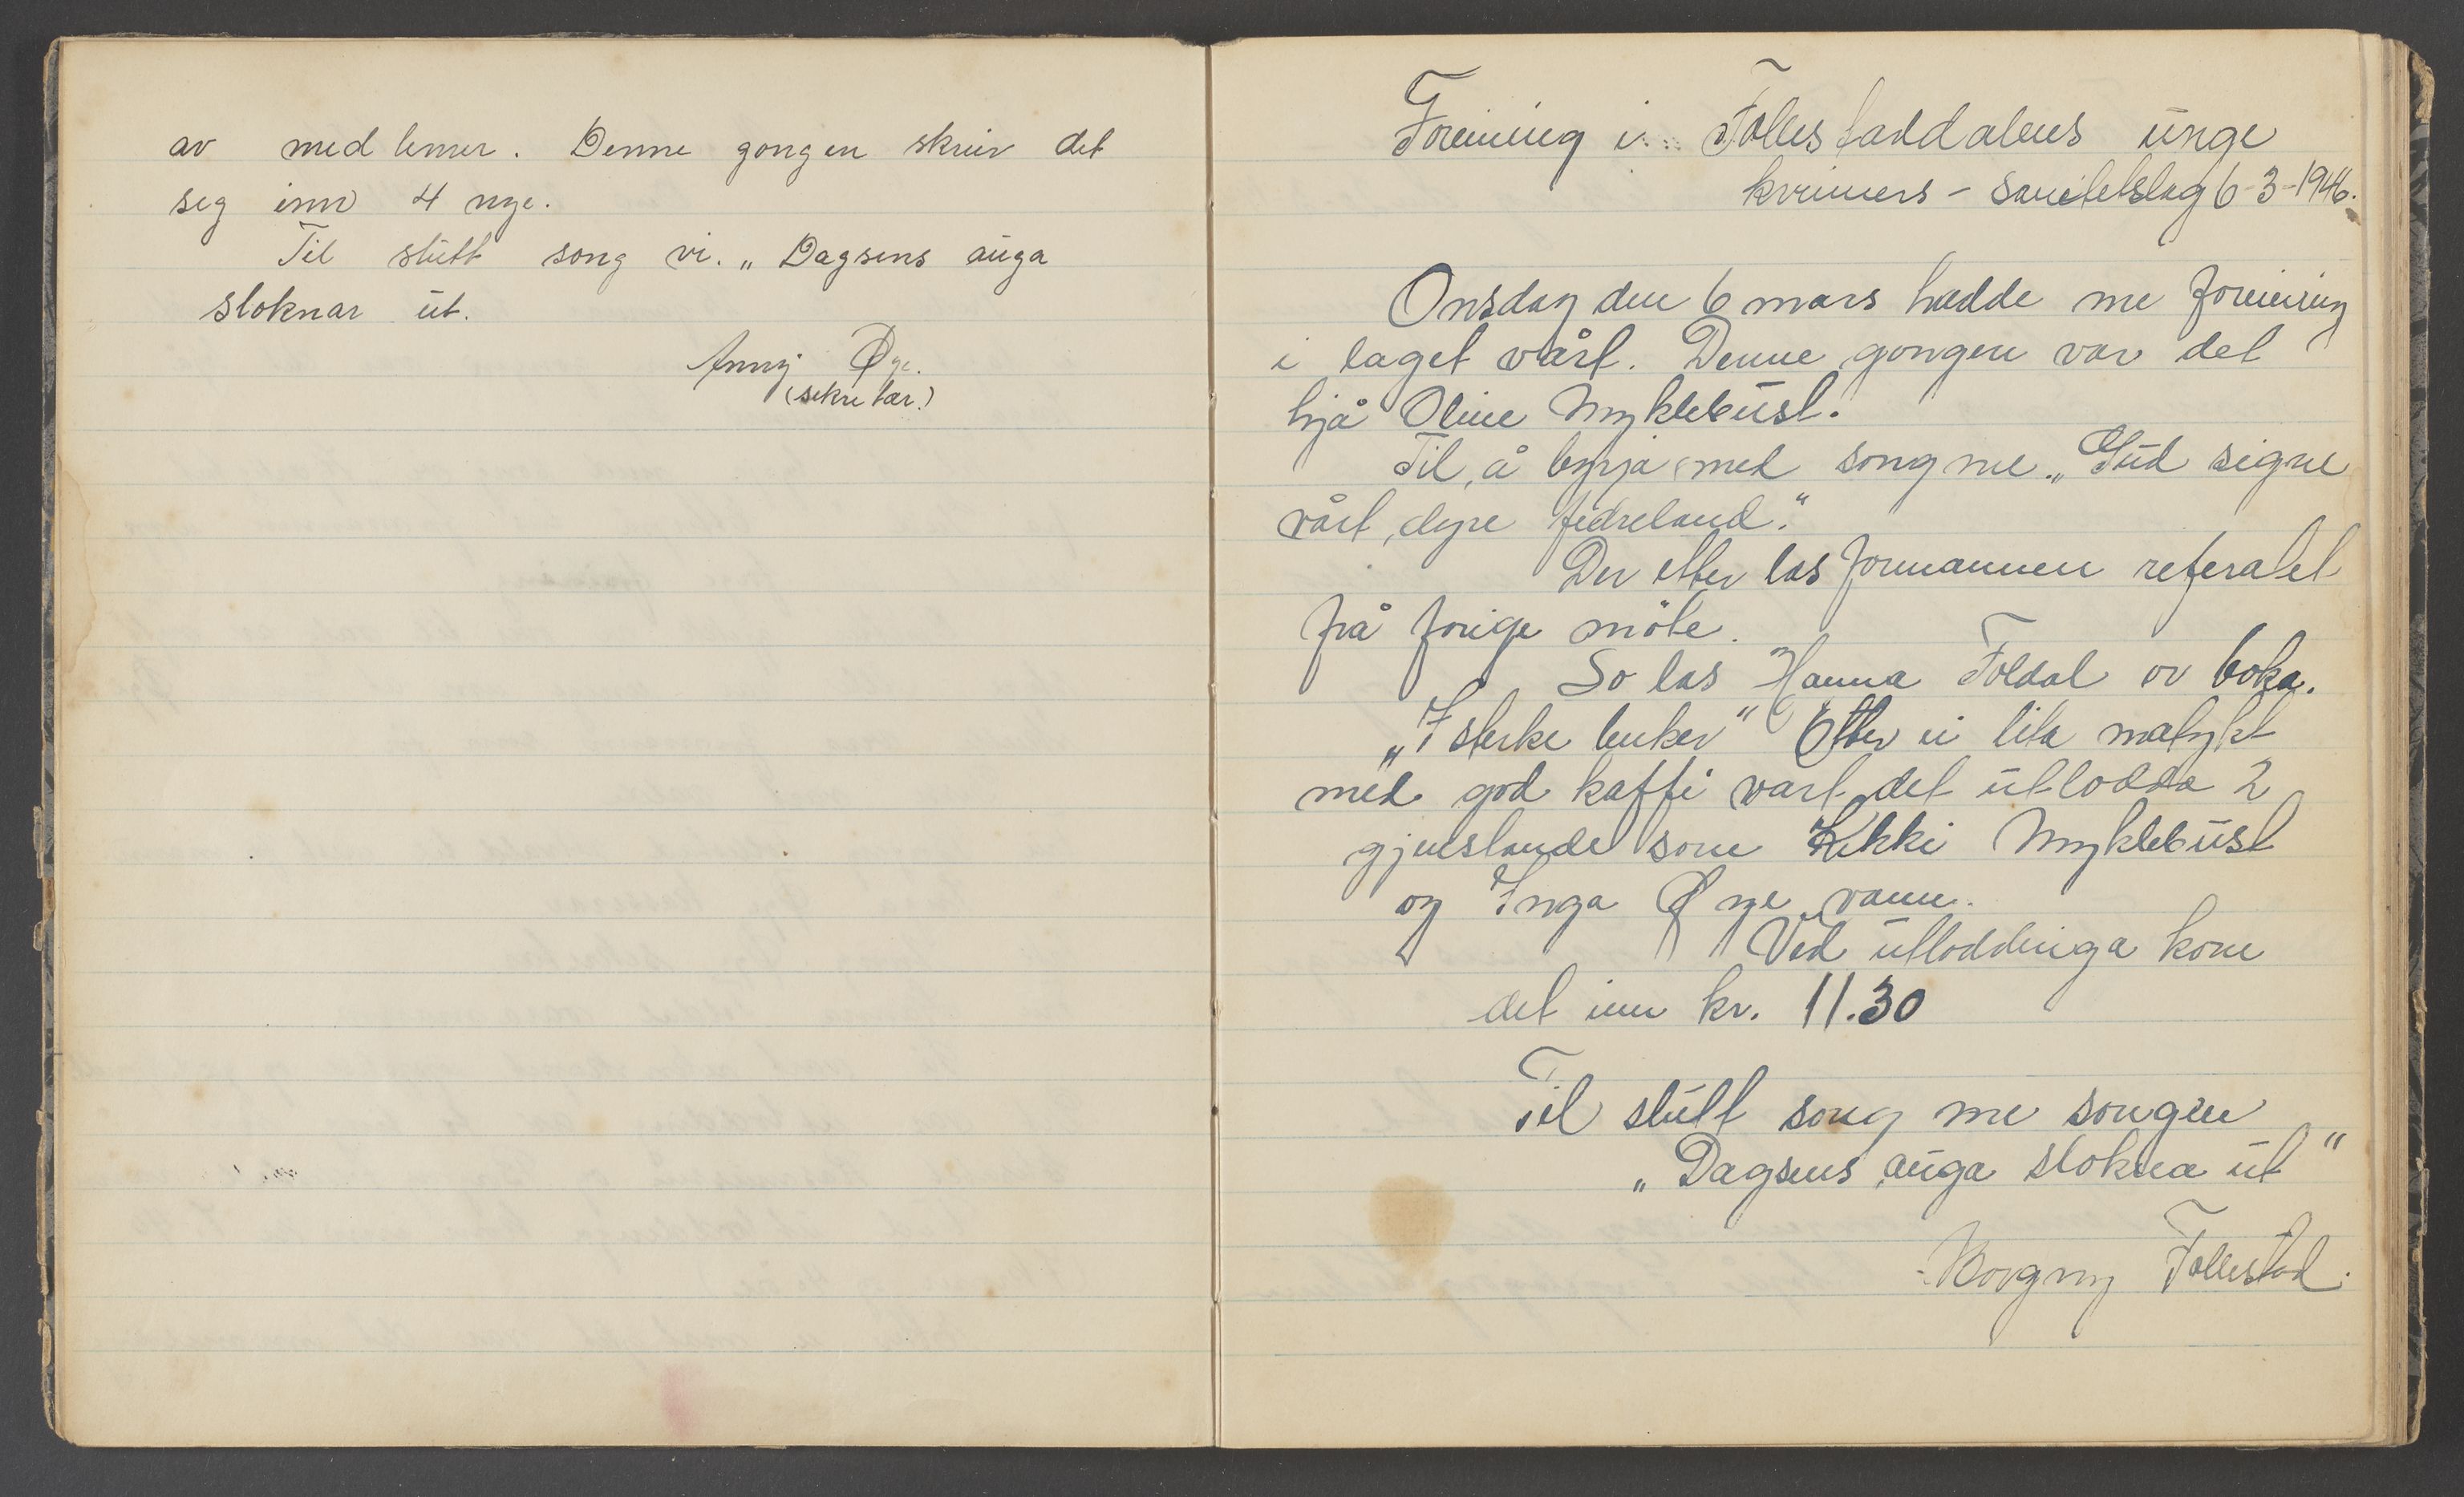 av medlemer. Denne gongen skreiv det
seg inn 4 nye.
Til slutt song vi. „Dagsens auga
sloknar ut.
Anny Øye.
(sekretær.)
Foreining i Follestaddalens unge
kvinners - sanitetslag 6-3-1946.
Onsdag den 6 mars hadde me foreining
i laget vårt. Denne gongen var det
hjå Oline Myklebust.
Til å byrja med song me. „Gud signe
vårt dyre fedreland."
Der etter las formannen referatet
frå forige möte.
So las Hanna Foldal ov boka.
„I sterke lenker" Etter ei lita matykt
med god kaffi vart det utlodda 2
gjenstande som Kikki Myklebust
og Inga Øye vann.
Ved utloddinga kom
det inn kr. 11.30
Til slutt song me songen
„Dagsens auga slokna ut"
Borgny Follestad.